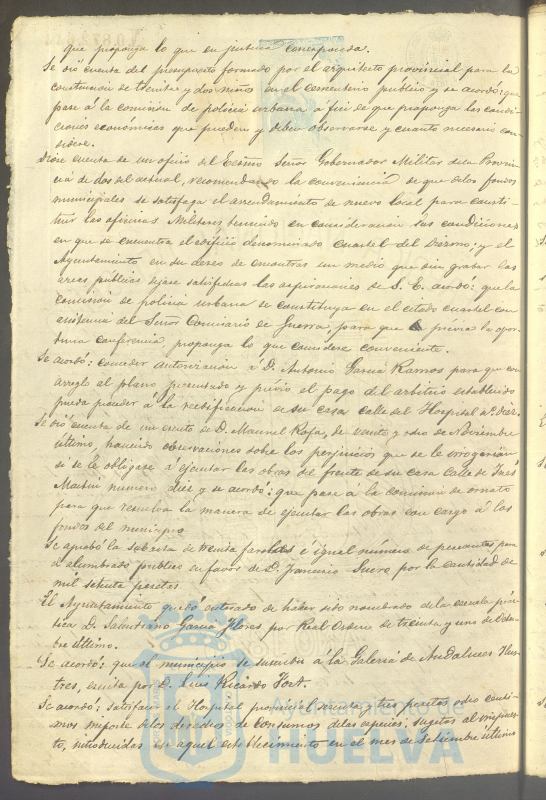 que proponga lo que en justicia corresponda.
Se dió cuenta del presupuesto formado por el arquitecto provincial para la
construccion de treinta y dos nichos en el cementerio publico y se acordó: que
pase á la comision de policia urbana a fin de que proponga las condi-
ciones económicas que pueden y deben observarse y cuanto necesario con-
sidere.
Dióse cuenta de un oficio del Ecsmo Señor Gobernador Militar de la Provin-
cia de dos del actual, recomendando la conveniencia de que delos fondos
municipales se satisfaga el arrendamiento de nuevo local para consti-
tuir las oficinas Militares teniendo en consideracion las condiciones
en que se encuentra el edificio denominado cuartel del Diezmo; y el
Ayuntamiento en su deseo de encontrar un medio que sin grabar las
arcas publicas dejase satisfechas las aspiraciones de S. E. acordó: que la
comision de policia urbana se constituya en el citado cuartel con
asistencia del Señor Comisario de Guerra, para que previa la opor-
tuna conferencia, proponga lo que considere conveniente.
Se acordó: conceder autorizacion á D. Antonio Garcia Ramos para que con
arreglo al plano presentado y previo el pago del arbitrio establecido
pueda proceder á la reedificacion de su casa calle del Hospital nº diez.
Se dió cuenta de un escrito de D. Manuel Rofa, de veinte y ocho de Noviembre
último, haciendo observaciones sobre los perjuicios que se le irrogarian
si se le obligase á ejecutar las obras del frente de su casa calle de José
Martin numero diez y se acordó: que pase a la comision de ornato
para que resuelva la manera de ejecutar las obras con cargo á los
fondos del municipio
Se aprobó la subasta de treinta faroles é igual número de pescantes para
el alumbrado publico en favor de D. Francisco Suero por la cantidad de
mil setenta pesetas
El Ayuntamiento quedó enterado de haber sido nombrado de la escuela prác-
tica D. Salustiano Garcia Flores por Real Orden de treinta y uno de Octu-
bre último.
Se acordó: que el municipio se suscriba á la Galeria de Andaluces Ilus-
tres, escrita por D. Luis Ricardo Fort.
Se acordó: satisfacer al Hospital provincial sesenta y tres pesetas ocho centi-
mos importe delos derechos de consumos delas especies sugetas al impues-
to, introducidas en aquel establecimiento en el mes de Setiembre último
HUELVA